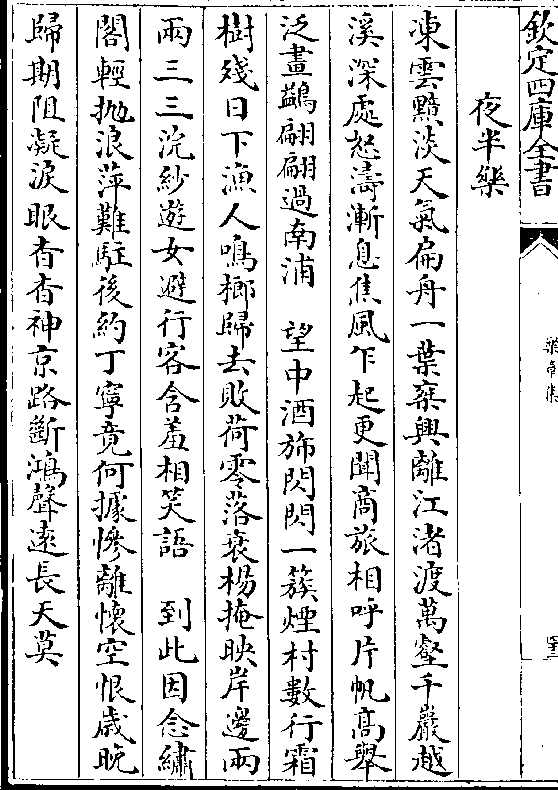 欽定四庫全書
夜半樂
凍雲黯淡天氣扁舟一葉乗興離江渚渡萬壑千巖越
溪深處怒濤漸息焦風乍起更聞商旅相呼片帆髙舉
泛畫鷁翩翩過南浦　望中酒斾閃閃一簇煙村數行霜
樹殘日下漁人鳴榔歸去敗荷零落衰楊掩映岸邊兩
兩三三浣紗遊女避行客含羞相笑語　到此因念繡
閣輕抛浪萍難駐後約丁寧竟何據慘離懷空恨歲晚
歸期阻凝淚眼杳杳神京路斷鴻聲逺長天莫